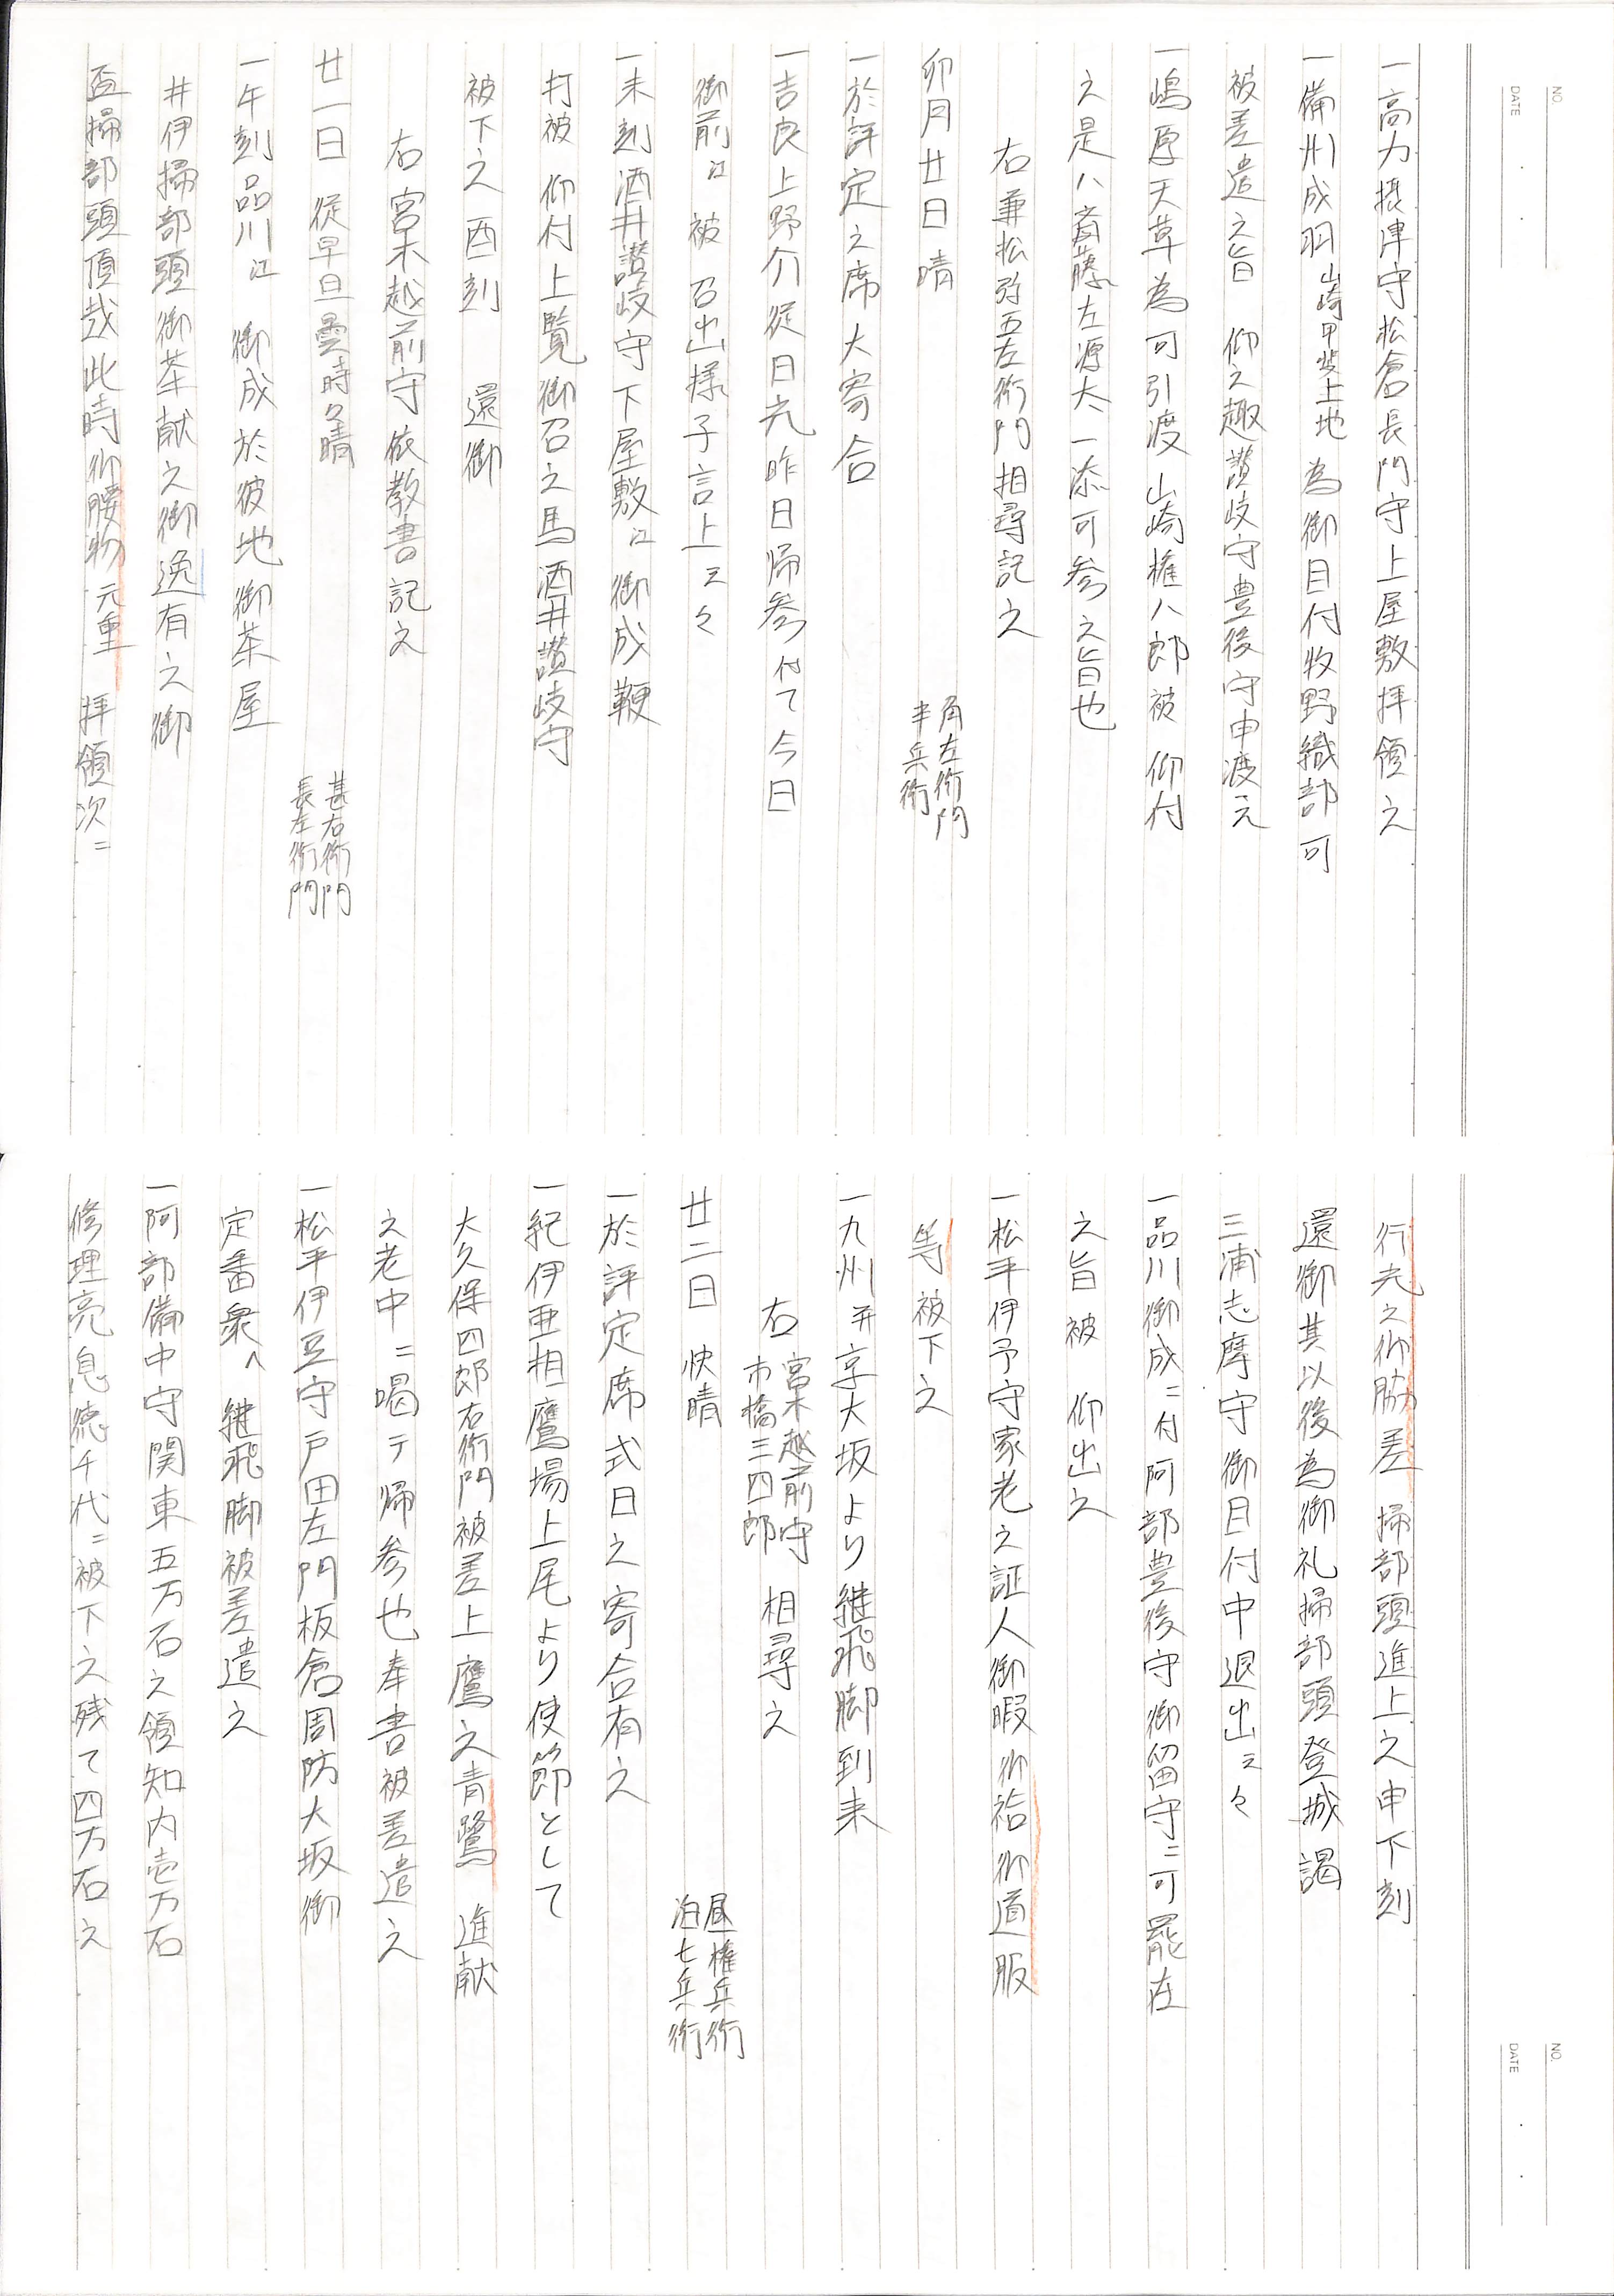 NO.
DATE
一高力摂津守松倉長門守上屋敷拝領之
一備州成羽山崎甲斐上地為御目付牧野織部可
被差遣之旨 仰之趣讃岐守豊後守申渡之
一嶋原天草為可引渡山崎権八郎被 仰付
之是八斎藤左源太一添可参之旨也
右兼松弥五左衛門相尋記之
卯月廿日晴
角左衛門
半兵衛
一於評定之席大寄合
一吉良上野介従日光昨日帰参付て今日
御前江被 召出様子言上云々
一未刻酒井讃岐守下屋敷江御成鞭
打被 仰付上覧御召之馬酒井讃岐守
被下之酉刻 還御
右宮木越前守依教書記之
廿一日 従早旦曇時々晴
甚右衛門
長左衛門
一午刻品川江 御成於彼地御茶屋
井伊掃部頭御茶献之御逸有之御
盃掃部頭頂戴此時御腰物元重 拝領次ニ
NO.
DATE
行光之御脇差 掃部頭進上之申下刻
還御其以後為御礼掃部頭登城謁
三浦志摩守御目付中退出云々
一品川御成ニ付阿部豊後守御留守ニ可罷在
之旨被 仰出之
一松平伊予守家老之証人御暇御袷御道服
等被下之
一九州并京大坂より継飛脚到来
右 宮木越前守
市橋三四郎 相尋之
廿二日 快晴
昼権兵衛
泊七兵衛
一於評定席式日之寄合有之
一紀伊亜相鷹場上尾より使節として
大久保四郎右衛門被差上鷹之青鷺 進献
之老中ニ喝テ帰参也奉書被差遣之
一松平伊豆守戸田左門板倉周防大坂御
定番衆へ 継飛脚被差遣之
一阿部備中守関東五万石之領知内壱万石
修理亮息徳千代ニ被下之残て四万石之